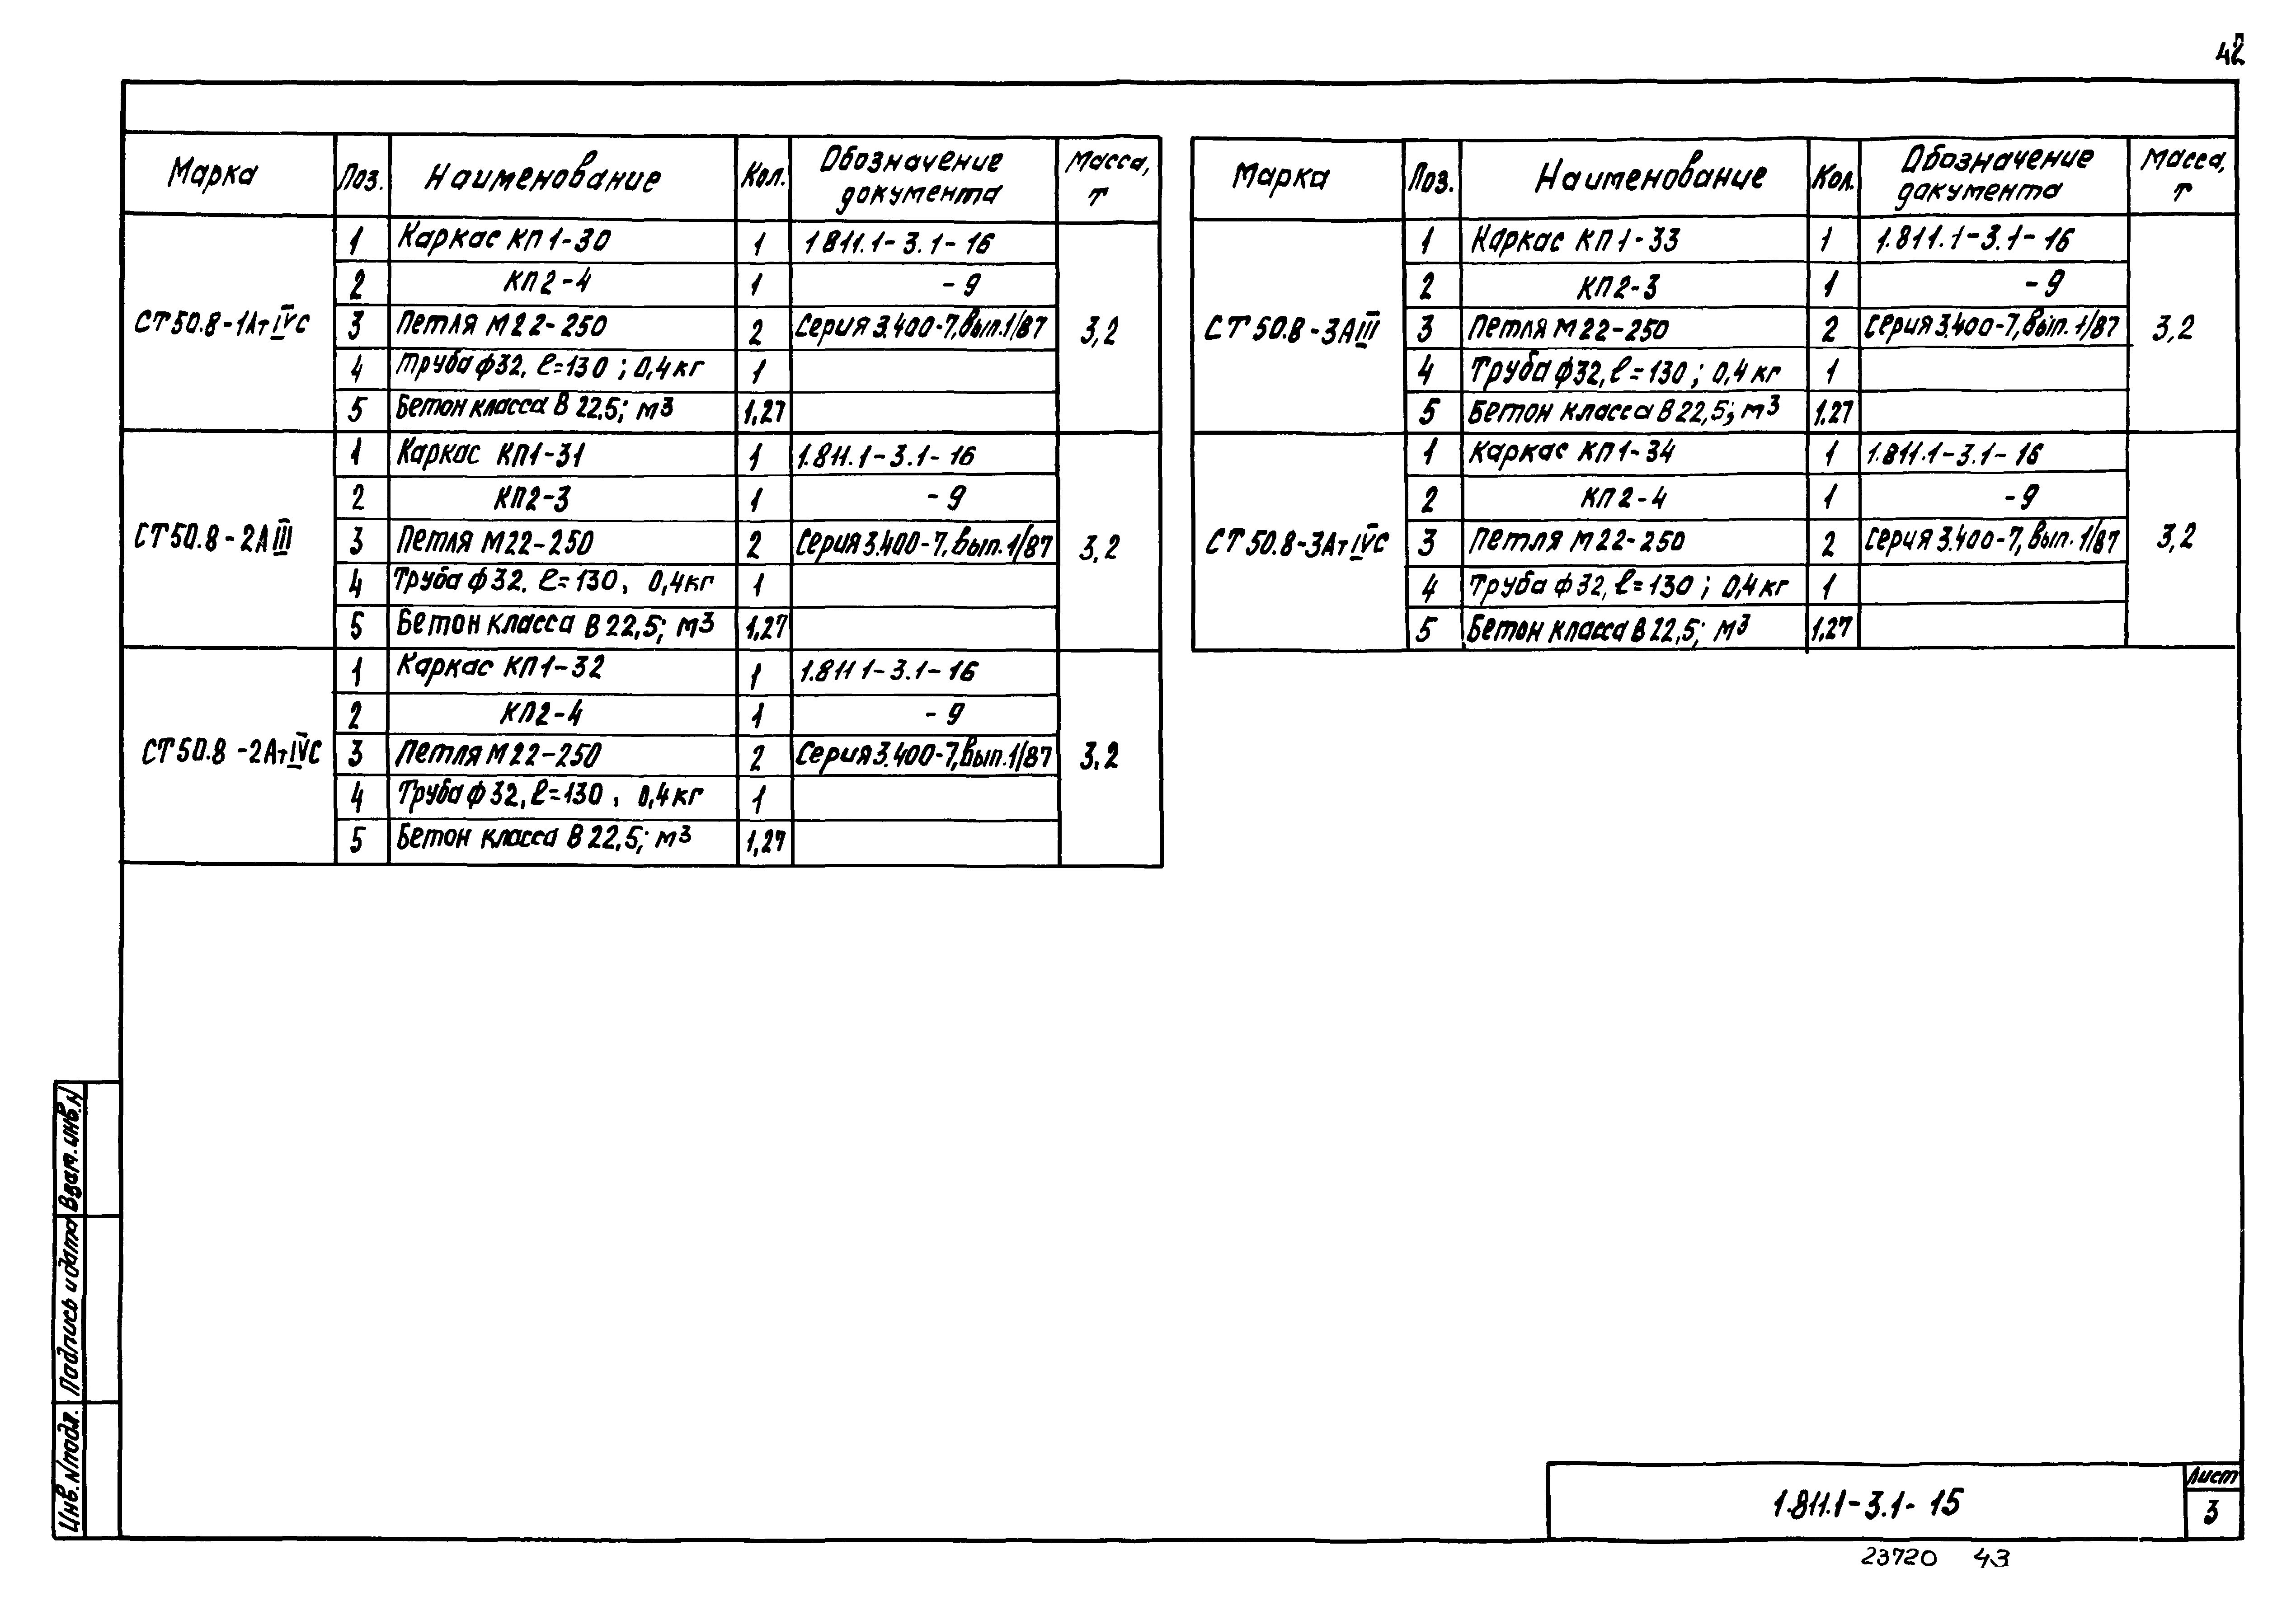 42
Марка Поз. Наименование Кол. Обозначение документа Масса, т
СТ50.8-1АтIVС
1 Каркас КП1-30 1 1811.1-3.1-16
2 КП2-4 1 -9
3 Петля М22-250 2 Серия 3.400-7, вып.1/87 3,2
4 Труба ф32, ℓ=130; 0,4кг 1
5 Бетон класса В22,5; м3 1,27
СТ50.8-2АIII
1 Каркас КП1-31 1 1.811.1-3.1-16
2 КП2-3 1 -9
3 Петля М22-250 2 Серия 3.400-7, вып.1/87 3,2
4 Труба ф32, ℓ=130, 0,4кг 1
5 Бетон класса В22,5; м3 1,27
СТ50.8-2АтIVС
1 Каркас КП1-32 1 1.811 1-3.1-16
2 КП2-4 1 -9
3 Петля М22-250 2 Серия 3.400-7, вып.1/87 3,2
4 Труба ф32, ℓ=130, 0,4кг 1
5 Бетон класса В22,5; м3 1,27
Марка Поз. Наименование Кол. Обозначение документа Масса, т
СТ50.8-3АIII
1 Каркас КП1-33 1 1.811.1-3.1-16
2 КП2-3 1 -9
3 Петля М22-250 2 Серия 3.400-7, вып.1/87 3,2
4 Труба ф32, ℓ=130; 0,4кг 1
5 Бетон класса В22,5; м3 1,27
СТ50.8-3АтIVС
1 Каркас КП1-34 1 1.811.1-3.1-16
2 КП2-4 1 -9
3 Петля М22-250 2 Серия 3.400-7, вып.1/87 3,2
4 Труба ф32, ℓ=130; 0,4кг 1
5 Бетон класса В22,5; м3 1,27
Инв.№подл. Подпись и дата Взам.инв.№
1.811.1-3.1-15
Лист
3
23720 43